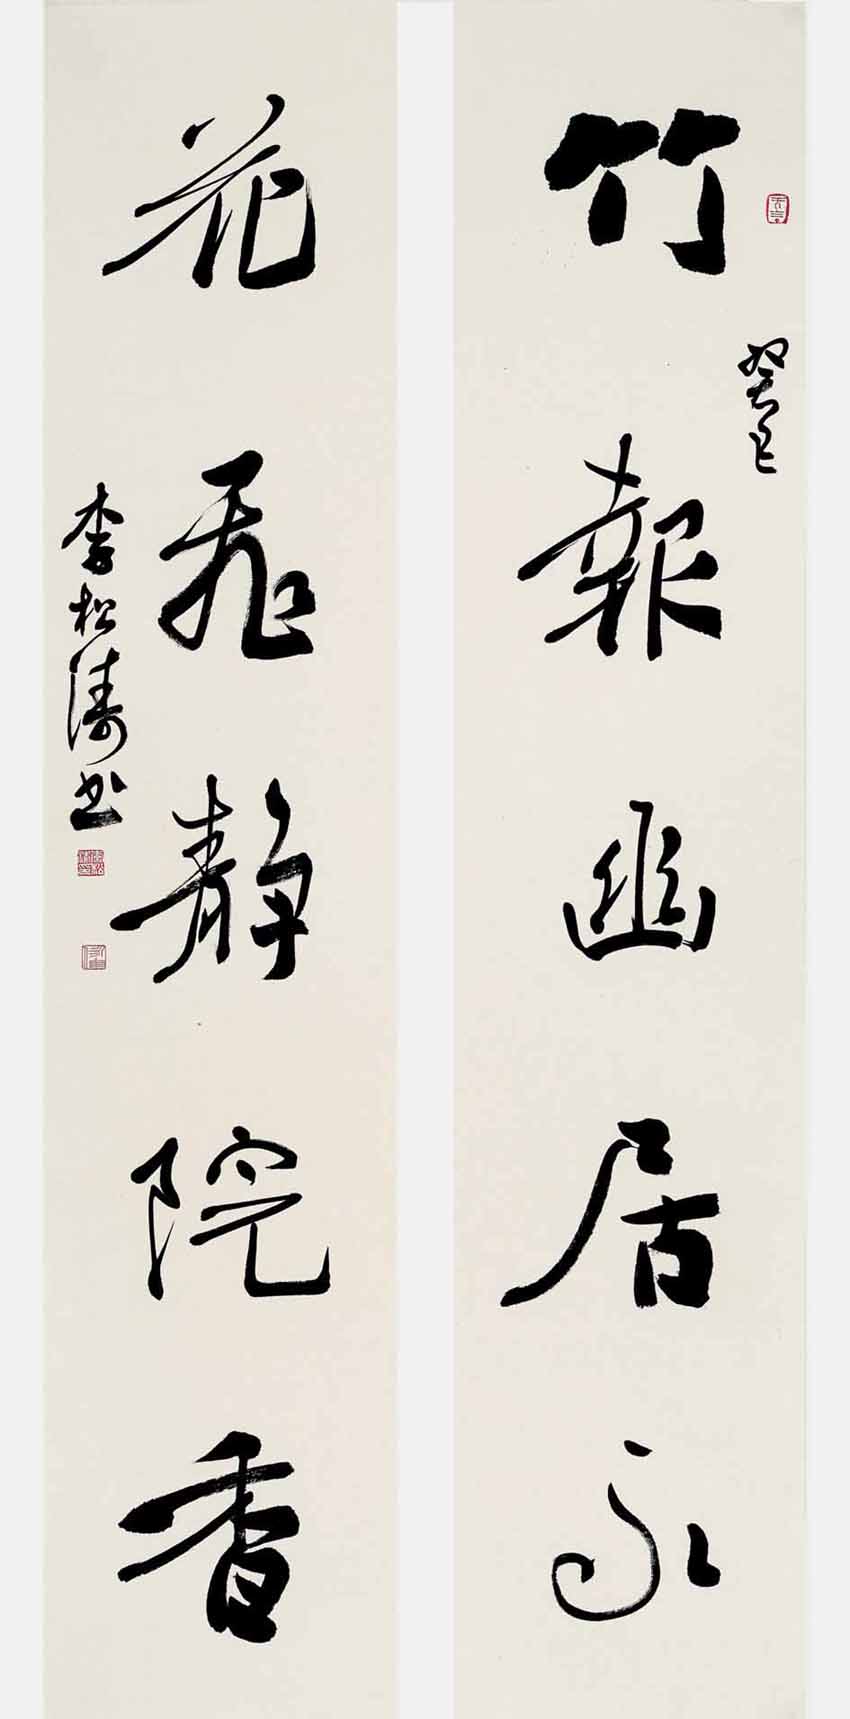 竹報幽居永
癸巳
花靜院香
李松濤書